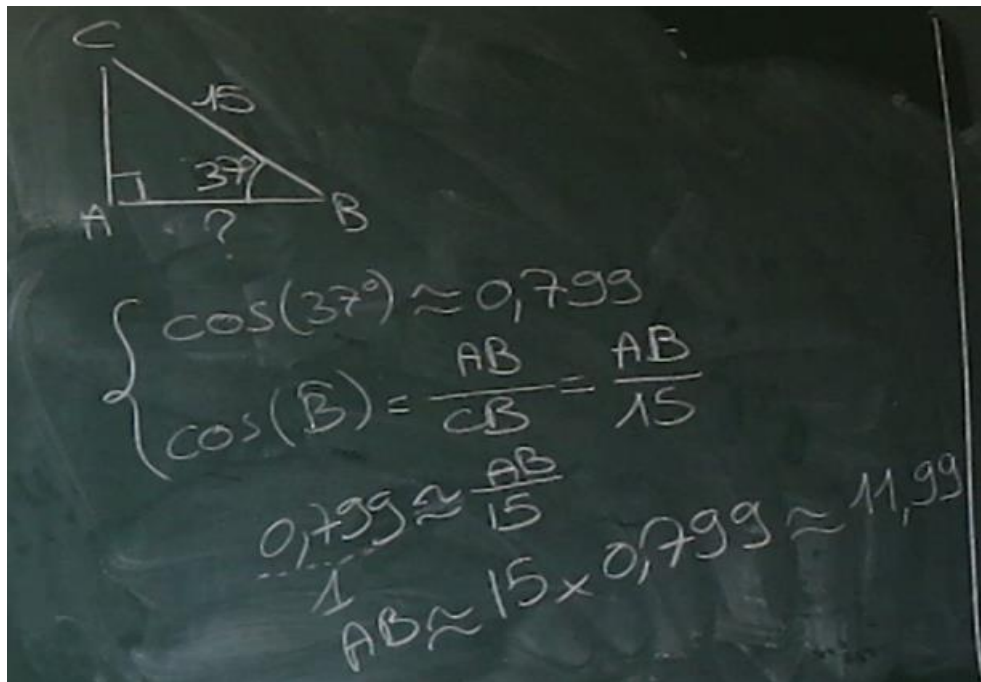 C
15
37°
A ? B
cos(37°) ≈ 0,799
cos(B̂) = AB/CB = AB/15
0,799/1 ≈ AB/15
AB ≈ 15 × 0,799 ≈ 11,99